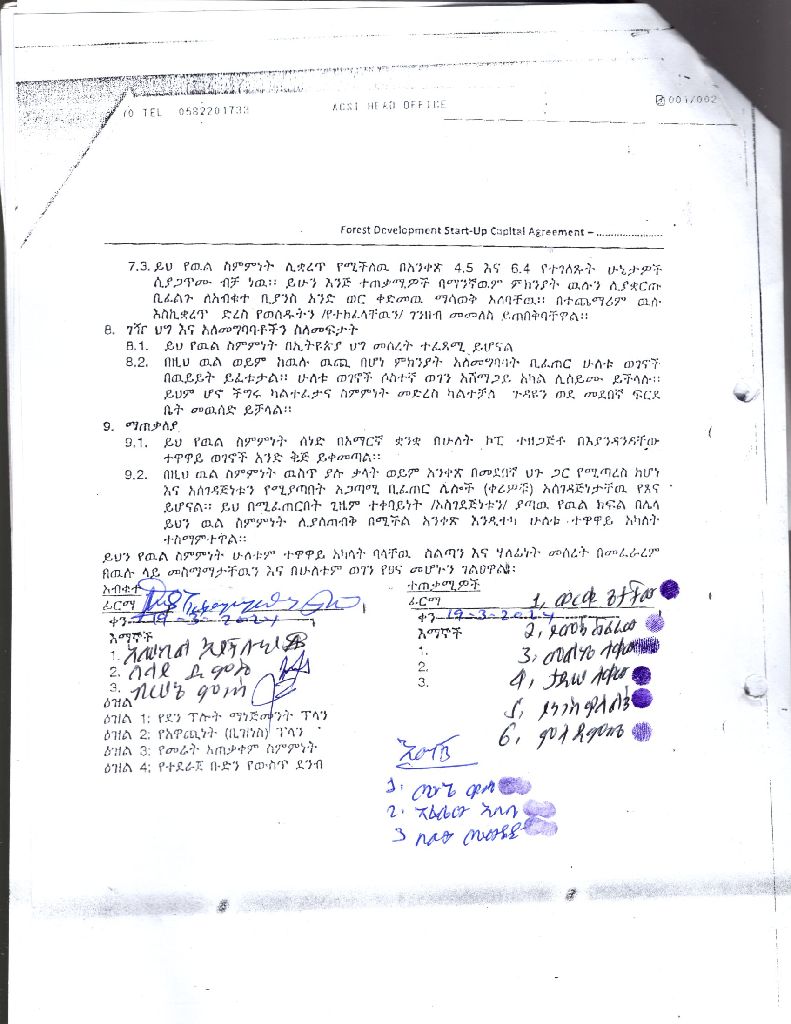 TO TEL 0582201733 ACSI HEAD OFFICE 001/002
Forest Development Start-Up Capital Agreement – .....................
7.3. ይህ የዉል ስምምነት ሊቋረጥ የሚችለዉ በአንቀጽ 4.5 እና 6.4 የተገለጹት ሁኔታዎች
ሲያጋጥሙ ብቻ ነዉ፡፡ ይሁን እንጅ ተጠቃሚዎች በማንኛዉም ምክንያት ዉሉን ሊያቋርጡ
ቢፈልጉ ለአብቁተ ቢያንስ አንድ ወር ቀድመዉ ማሳወቅ አለባቸዉ፡፡ በተጨማሪም ዉሉ
እስኪቋረጥ ድረስ የወሰዱትን /የተከፈላቸዉን/ ገንዘብ መመለስ ይጠበቅባቸዋል፡፡
8. ገዥ ህግ እና አለመግባባቶችን ስለመፍታት
8.1. ይህ የዉል ስምምነት በኢትዮጵያ ህግ መሰረት ተፈጻሚ ይሆናል
8.2. በዚህ ዉል ወይም ከዉሉ ዉጪ በሆነ ምክንያት አለመግባባት ቢፈጠር ሁለቱ ወገኖች
በዉይይት ይፈቱታል፡፡ ሁለቱ ወገኖች ሶስተኛ ወገን አሸማጋይ አካል ሊሰይሙ ይችላሉ፡፡
ይህም ሆኖ ችግሩ ካልተፈታና ስምምነት መድረስ ካልተቻለ ጉዳዩን ወደ መደበኛ ፍርድ
ቤት መዉሰድ ይቻላል፡፡
9. ማጠቃለያ
9.1. ይህ የዉል ስምምነት ሰነድ በአማርኛ ቋንቋ በሁለት ኮፒ ተዘጋጅቶ በእያንዳንዳቸው
ተዋዋይ ወገኖች አንድ ቅጅ ይቀመጣል፡፡
9.2. በዚህ ዉል ስምምነት ዉስጥ ያሉ ቃላት ወይም አንቀጽ በመደበኛ ህጉ ጋር የሚጣረስ ከሆነ
እና አስገዳጅነቱን የሚያጣበት አጋጣሚ ቢፈጠር ሌሎች (ቀሪዎቹ) አስገዳጅነታቸዉ የጸና
ይሆናል፡፡ ይህ በሚፈጠርበት ጊዜም ተቀባይነት /አስገዳጅነቱን/ ያጣዉ የዉል ክፍል በሌላ
ይህን ዉል ስምምነት ሊያስጠብቅ በሚችል አንቀጽ እንዲተካ ሁለቱ ተዋዋይ አካላት
ተስማምተዋል፡፡
ይህን የዉል ስምምነት ሁለቱም ተዋዋይ አካላት ባላቸዉ ስልጣን እና ሃላፊነት መሰረት በመፈራረም
በዉሉ ላይ መስማማታቸዉን እና በሁለቱም ወገን የፀና መሆኑን ገልፀዋል፡
አብቁተ ተጠቃሚዎች
ፊርማ ፊርማ 1,
ቀን 19-3-2024 ቀን 19-3-2024
እማኞች እማኞች 2,
1. 1. 3,
2. 2. 4,
3. 3.
ዕዝል 5,
ዕዝል 1: የደን ፕሎት ማነጅመንት ፕላን
ዕዝል 2: የአዋጪነት (ቢዝነስ) ፕላን 6,
ዕዝል 3: የመሬት አጠቃቀም ስምምነት
ዕዝል 4: የተደራጀ ቡድን የውስጥ ደንብ
1.
2.
3